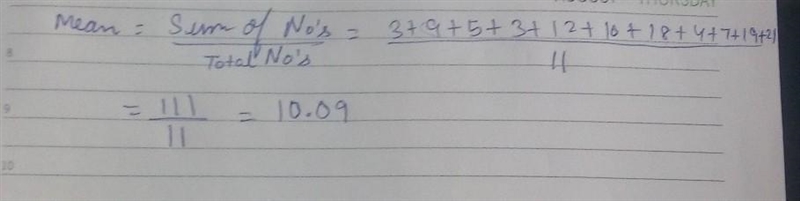 Mean = Sum of No's / Total No's = 3+9+5+3+12+10+18+4+7+19+21 / 11
8
= 111 / 11 = 10.09
9
10